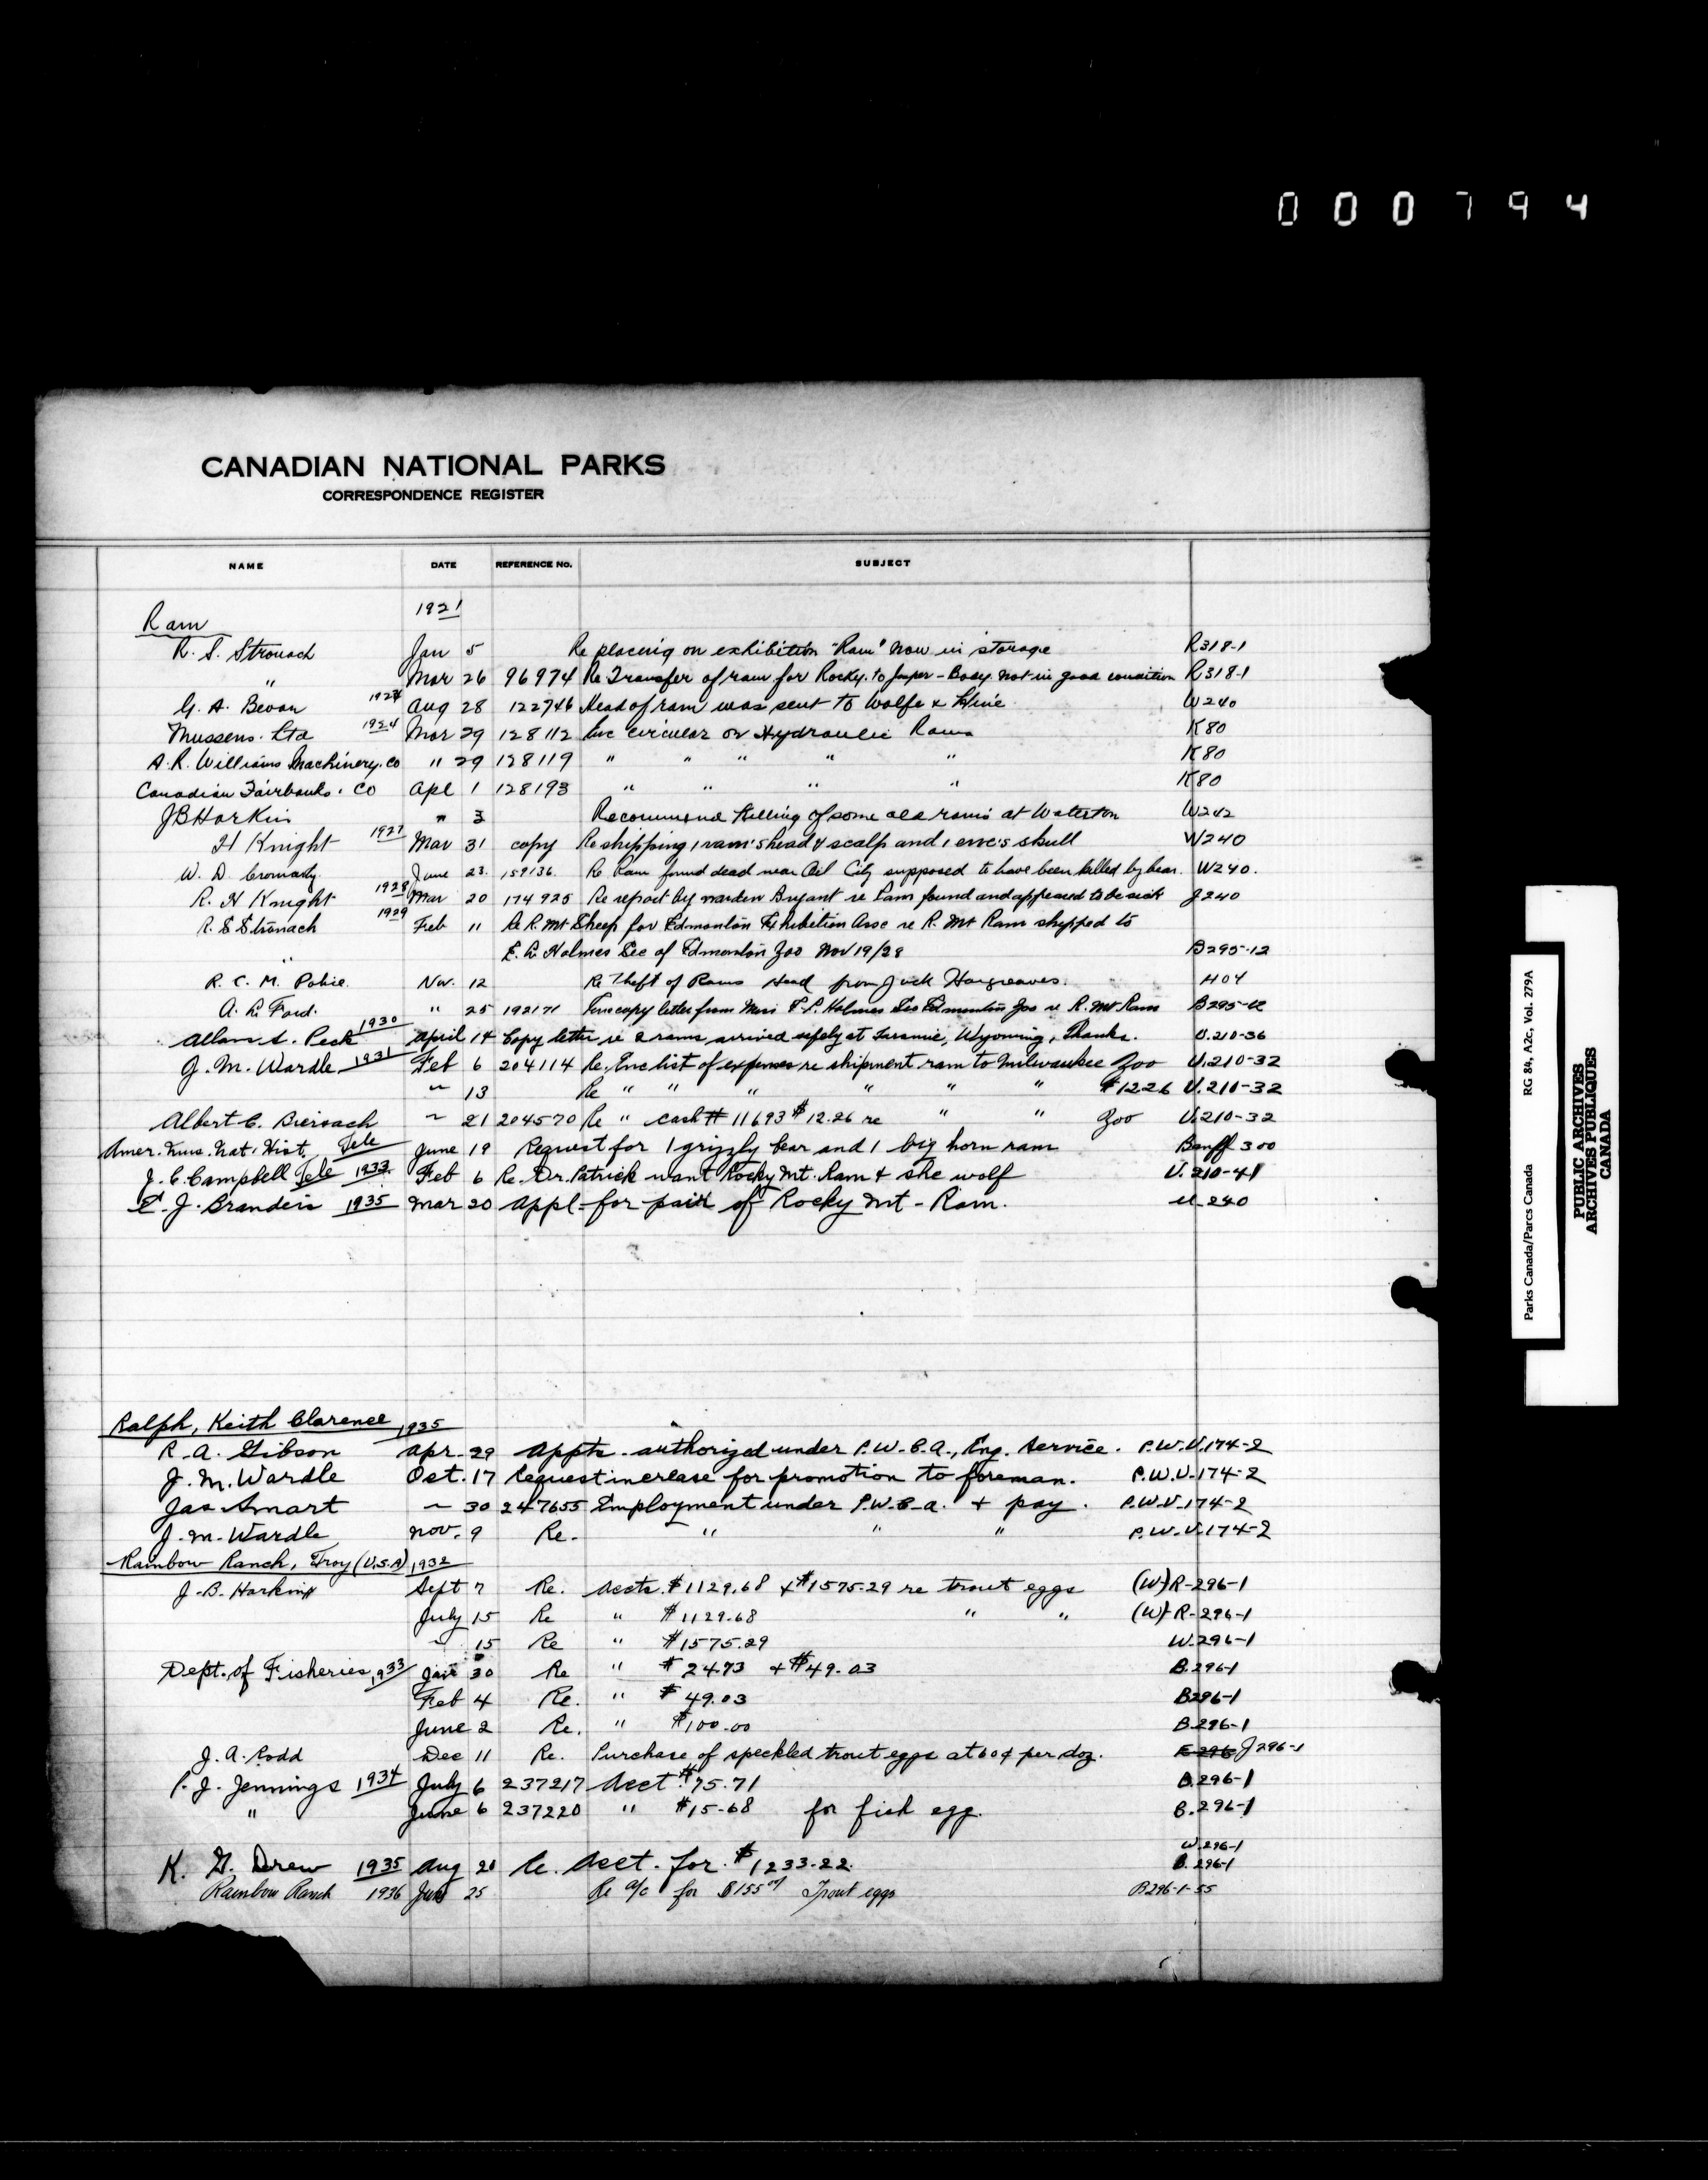 000794
CANADIAN NATIONAL PARKS
CORRESPONDENCE REGISTER
NAME DATE REFERENCE No. SUBJECT
1921
Ram
R. S. Stronach Jan 5 Re placing on exhibition "Ram" now in storage R318-1
" Mar 26 96974 Re Transfer of ram for Rocky. to Jasper - Body not in good condition R318-1
G. A. Bevan 1924 Aug 28 122746 Head of ram was sent to Wolfe & Hine W240
Mussens Ltd 1924 Mar 29 128112 Enc circular on Hydraulic Rams K80
A. R. Williams Machinery. Co " 29 128119 " " " " " K80
Canadian Fairbanks. Co Apl 1 128193 " " " " K80
JB Harkin " 3 Recommend killing of some old rams at Waterton W242
H Knight 1927 Mar 31 copy Re shipping 1 ram's head & scalp and 1 ewe's skull W240
W. D. Cromarty June 23. 159136 Re Ram found dead near Oil City supposed to have been killed by bear. W240.
R. H Knight 1928 Mar 20 174925 Re report by warden Bryant re Ram found and appeared to be sick J240
R. S Stronach 1929 Feb 11 Re R. Mt Sheep for Edmonton Exhibition Asso re R. Mt Ram shipped to
" E. L. Holmes Sec of Edmonton Zoo Nov 19/28 B295-12
R. C. M. Police. Nov. 12 Re Theft of Rams Head from Jack Hargreaves. H04
A. R. Ford. " 25 192171 copy letter from Miss Holmes Edmonton Zoo re R. Mt Ram B295-12
Allan S. Peck 1930 April 14 Copy letter re 2 rams arrived safely at Laramie, Wyoming, Thanks. U.210-36
J. M. Wardle 1931 Feb 6 204114 Re. Enc list of expenses re shipment ram to Milwaukee Zoo U.210-32
" 13 Re " " " " " " $12.26 U.210-32
Albert C. " 21 204570 Re " cash # 11693 $12.26 re " " Zoo U.210-32
Amer. Mus. Nat. Hist. Tele June 19 Request for 1 grizzly bear and 1 big horn ram Banff 300
J. C. Campbell Tele 1933. Feb 6 Re. Dr. Patrick want Rocky Mt. Ram & she wolf U.210-41
E. J. Brandeis 1935 Mar 20 Appl- for pair of Rocky Mt - Ram. U.240
Ralph, Keith Clarence 1935
R. A. Gibson Apr. 29 Appts. authorized under P.W.C.A., Eng. Service. P.W.U.174-2
J. M. Wardle Oct. 17 Request increase for promotion to foreman. P.W.U.174-2
Jas Smart " 30 247655 Employment under P.W.C.A. & pay. P.W.U.174-2
J. M. Wardle Nov. 9 Re. " " " P.W.U.174-2
Rainbow Ranch, Troy (U.S.A) 1932
J. B. Harkin Sept 7 Re. Accts. $1129.68 & $1575.29 re trout eggs (W) R-296-1
July 15 Re " $1129.68 " " (W) R-296-1
" 15 Re " $1575.29 W.296-1
Dept. of Fisheries 1933 Jan 30 Re " $24.73 & $49.03 B.296-1
Feb 4 Re. " $49.03 B296-1
June 2 Re. " $100.00 B.296-1
J. A. Rodd Dec 11 Re. Purchase of speckled trout eggs at 60¢ per doz. E 296 J296-1
P. J. Jennings 1934 July 6 237217 Acct. $75.71 B.296-1
" June 6 237220 " $15.68 for fish egg. B.296-1
W.296-1
K. G. Drew 1935 Aug 20 Re. Acct. for $1233.22. B.296-1
Rainbow Ranch 1936 Jun 25 Re a/c for $155 Trout eggs B296-1-55
Parks Canada/Parcs Canada RG 84, A2c, Vol. 279A
PUBLIC ARCHIVES
ARCHIVES PUBLIQUES
CANADA